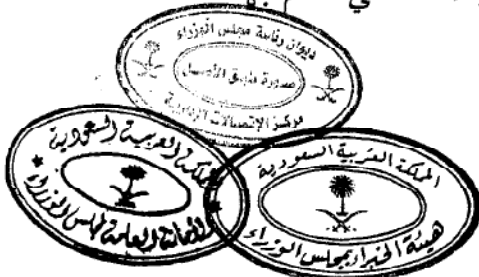 في
ديوان رئاسة مجلس الوزراء
صورة طبق الأصل
مركز الإتصالات الإدارية
المملكة العربية السعودية
الأمانة العامة لمجلس الوزراء
المملكة العربية السعودية
هيئة الخبراء بمجلس الوزراء